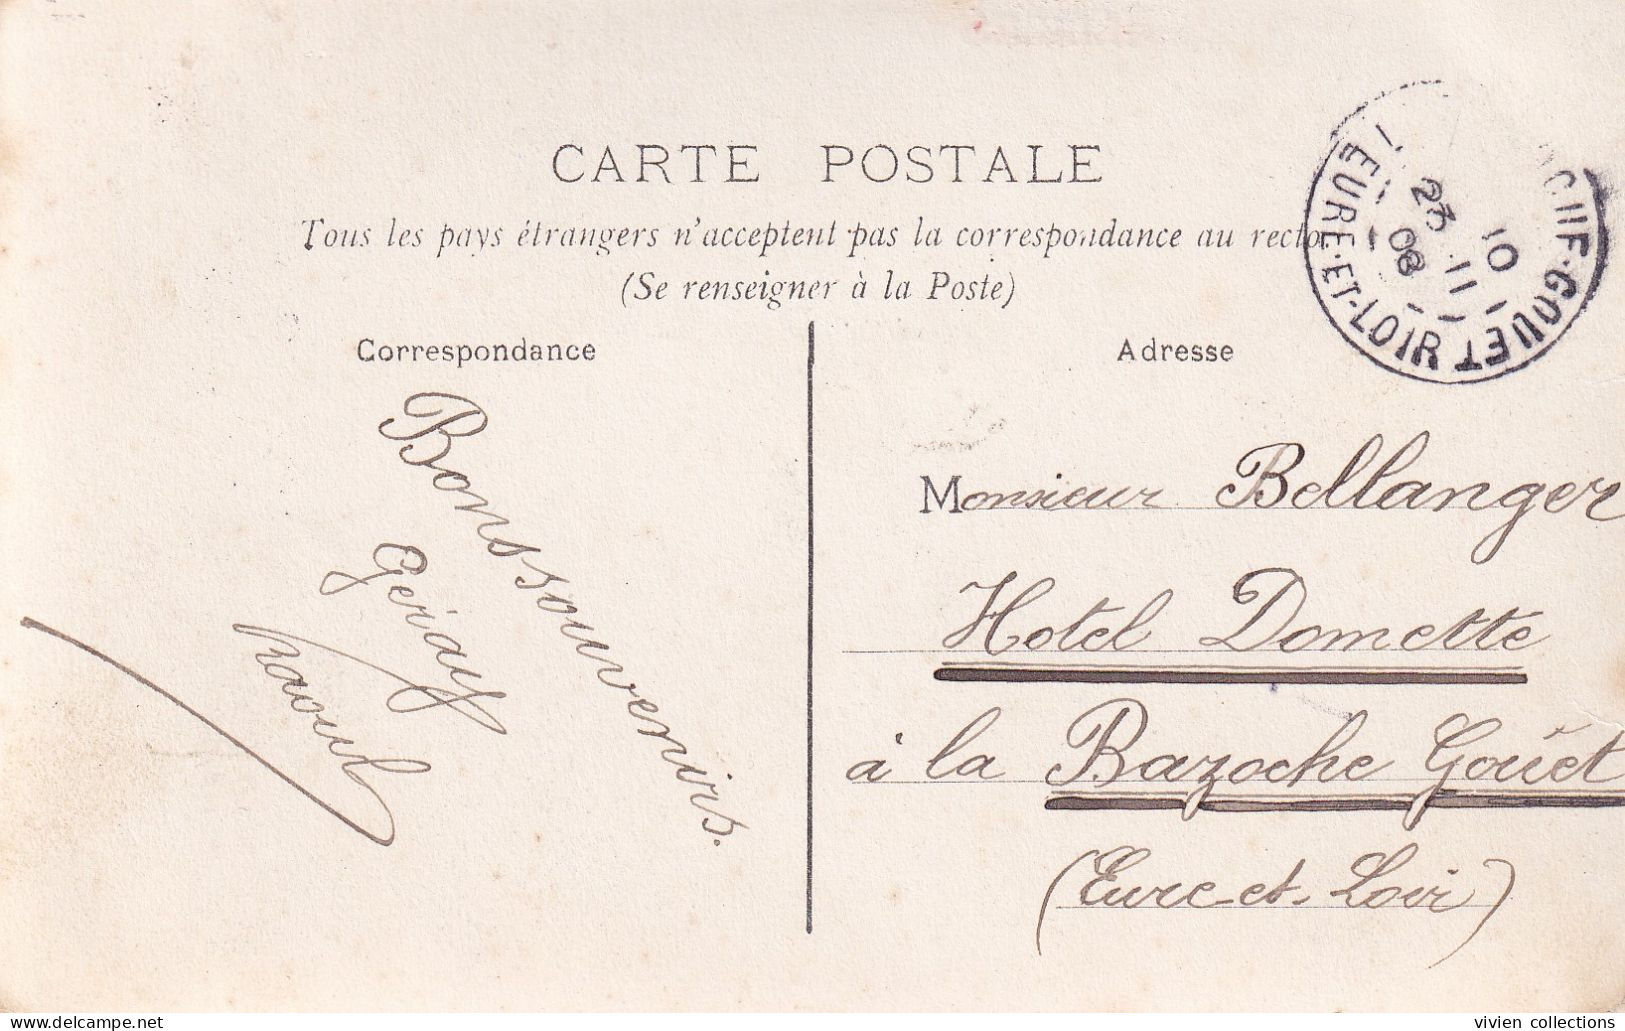 CARTE POSTALE
Tous les pays étrangers n'acceptent pas la correspondance au recto
(Se renseigner à la Poste)
Correspondance
Adresse
Bons souvenirs.
Géray
raoul
Monsieur Bellanger
Hotel Domette
à la Bazoche Gouët
(Eure-et-Loir)
GOUET
EURE-ET-LOIR
10
23 11
08
vivien collections